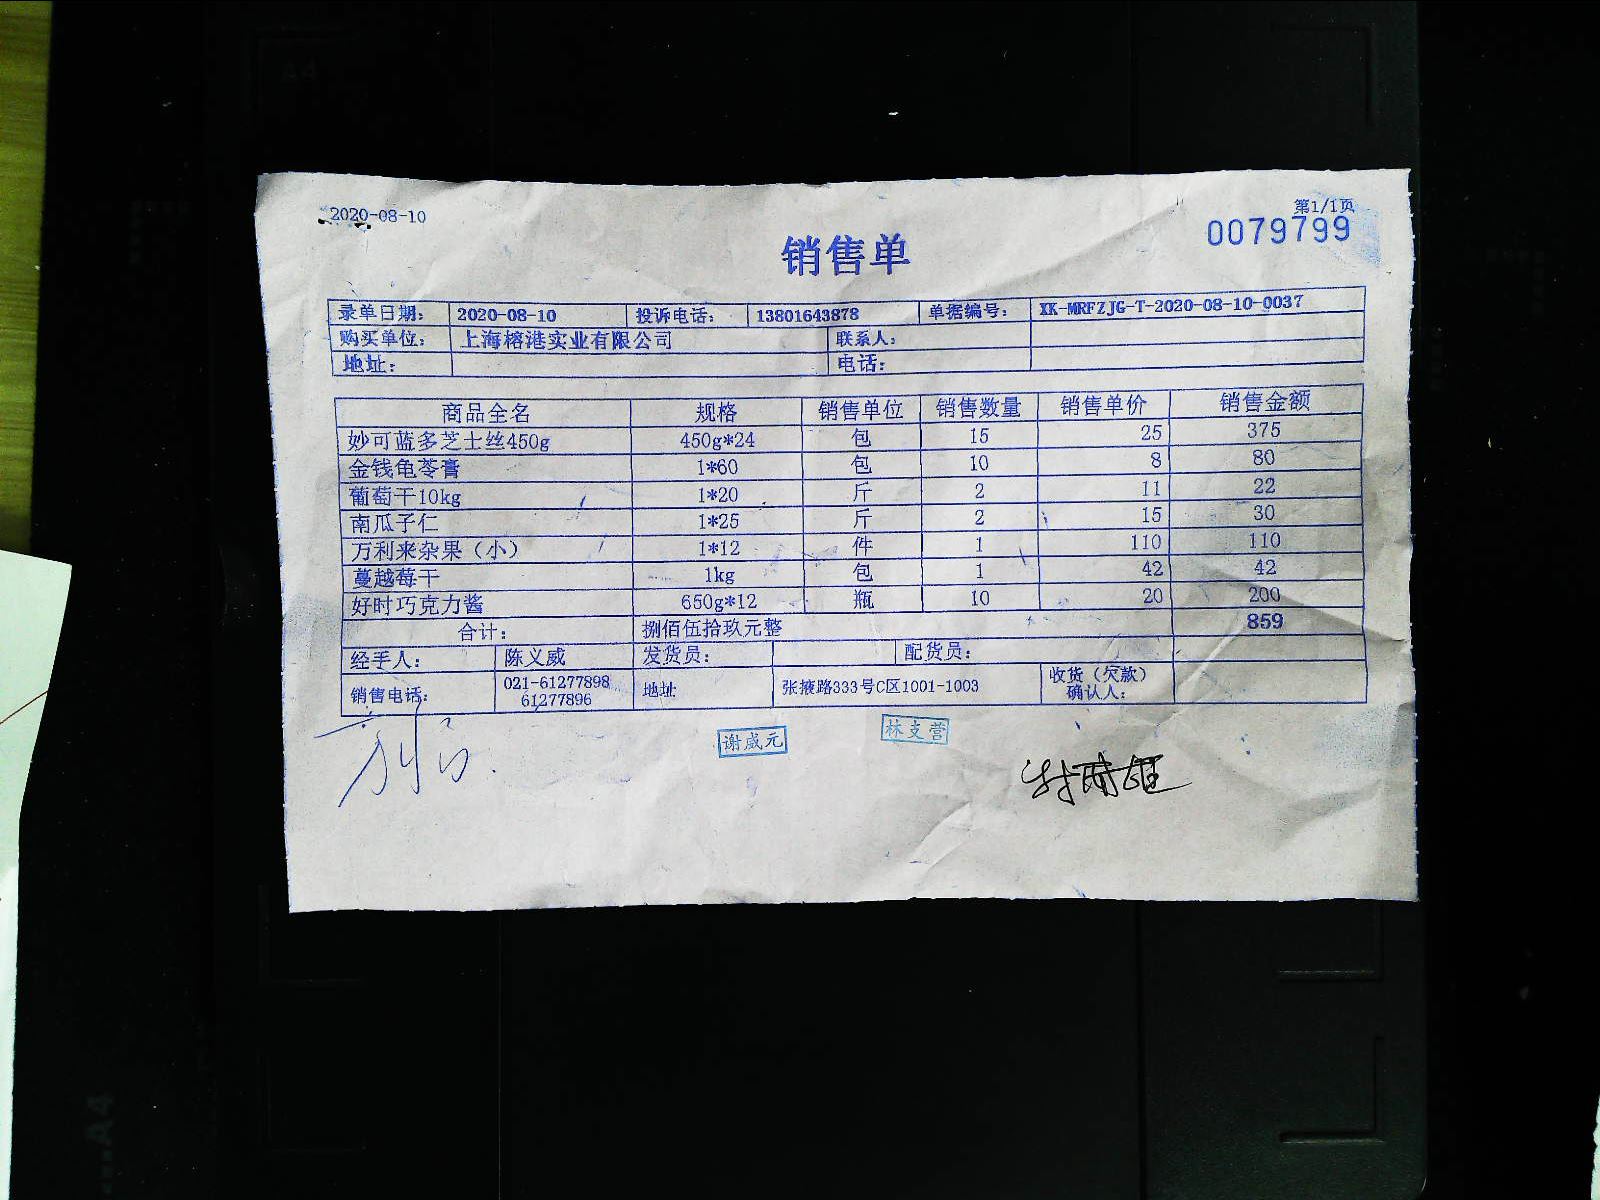 2020-08-10
第1/1页
0079799
销售单
录单日期: 2020-08-10 投诉电话: 13801643878 单据编号: XK-MRFZJG-T-2020-08-10-0037
购买单位: 上海榕港实业有限公司 联系人:
地址: 电话:
商品全名 规格 销售单位 销售数量 销售单价 销售金额
妙可蓝多芝士丝450g 450g*24 包 15 25 375
金钱龟苓膏 1*60 包 10 8 80
葡萄干10kg 1*20 斤 2 11 22
南瓜子仁 1*25 斤 2 15 30
万利来杂果（小） 1*12 件 1 110 110
蔓越莓干 1kg 包 1 42 42
好时巧克力酱 650g*12 瓶 10 20 200
合计: 捌佰伍拾玖元整 859
经手人: 陈义威 发货员: 配货员:
销售电话: 021-61277898 61277896 地址 张掖路333号C区1001-1003 收货（欠款）确认人:
谢威元
林支营